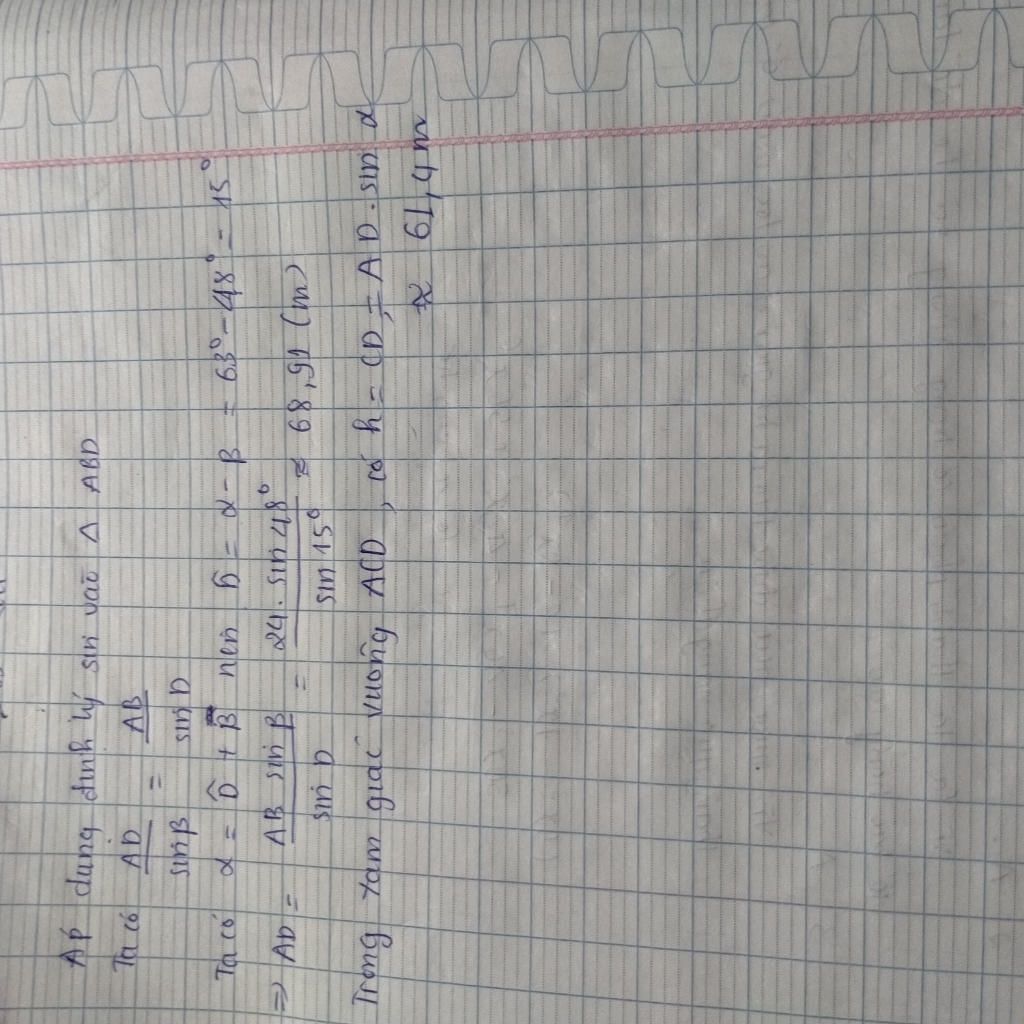 Áp dụng định lý sin vào △ ABD
Ta có AD / sin β = AB / sin D
Ta có α = D̂ + β nên D̂ = α - β = 63° - 48° = 15°
=> AD = AB sin β / sin D = 24. sin 48° / sin 15° ≈ 68,91 (m)
Trong tam giác vuông ACD, có h = CD = AD . sin α
≈ 61,4 m